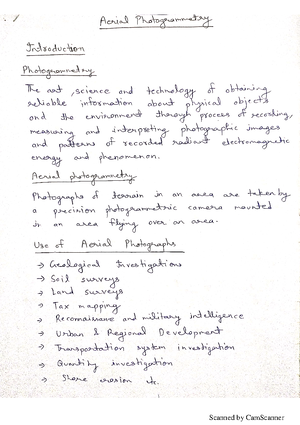 Aerial Photogrammetry
Introduction
Photogrammetry
The art, science and technology of obtaining
reliable information about physical objects
and the environment through process of recording,
measuring and interpreting photographic images
and patterns of recorded radiant electromagnetic
energy and phenomenon.
Aerial photogrammetry
Photographs of terrain in an area are taken by
a precision photogrammetric camera mounted
in an area flying over an area.
Use of Aerial Photographs
→ Geological Investigations
→ Soil surveys
→ Land surveys
→ Tax mapping
→ Reconnaissance and military intelligence
→ Urban & Regional Development
→ Transportation system investigation
→ Quantity investigation
→ Shore erosion etc.
Scanned by CamScanner